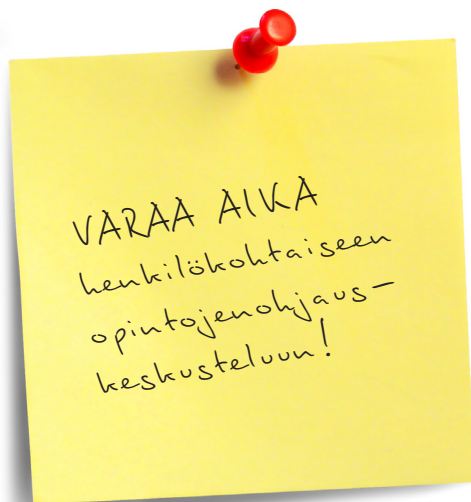 VARAA AIKA
henkilökohtaiseen
opintojenohjaus-
keskusteluun!